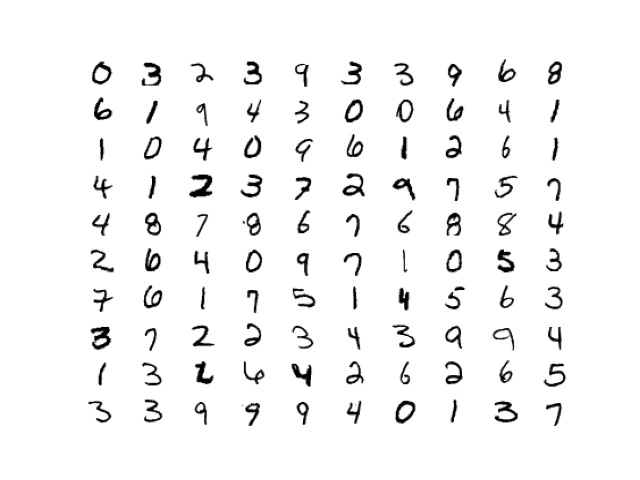 0 3 2 3 9 3 3 9 6 8
6 1 9 4 3 0 0 6 4 1
1 0 4 0 9 6 1 2 6 1
4 1 2 3 7 2 9 7 5 7
4 8 7 8 6 7 6 8 8 4
2 6 4 0 9 7 1 0 5 3
7 6 1 7 5 1 4 5 6 3
3 7 2 2 3 4 3 9 9 4
1 3 2 6 4 2 6 2 6 5
3 3 9 9 9 4 0 1 3 7